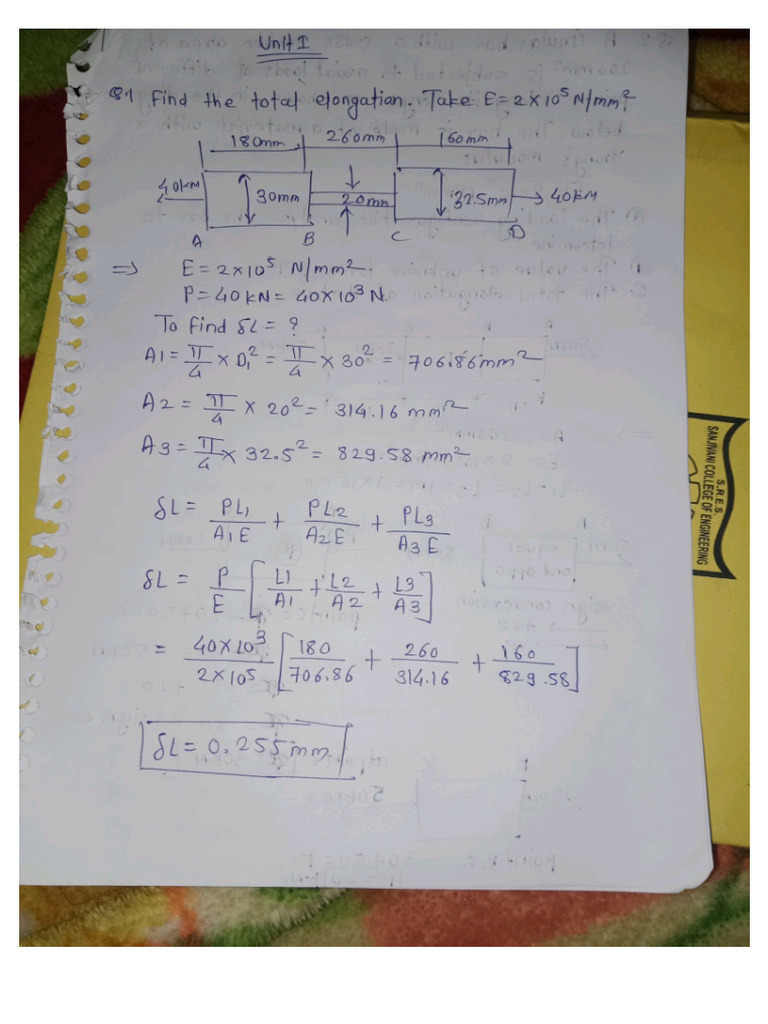 Unit I
Q.1 Find the total elongation. Take E = 2×10⁵ N/mm²
180mm 260mm 160mm
40KN 30mm 20mm 32.5mm 40KN
A B C D
⇒ E = 2×10⁵ N/mm²
P = 40 kN = 40×10³ N.
To find δL = ?
A1 = π/4 × D₁² = π/4 × 30² = 706.86mm²
A2 = π/4 × 20² = 314.16 mm²
A3 = π/4 × 32.5² = 829.58 mm²
δL = PL1/A1E + PL2/A2E + PL3/A3E
δL = P/E [L1/A1 + L2/A2 + L3/A3]
= 40×10³/2×10⁵ [180/706.86 + 260/314.16 + 160/829.58]
δL = 0.255mm
S.R.E.S.
SANJIVANI COLLEGE OF ENGINEERING